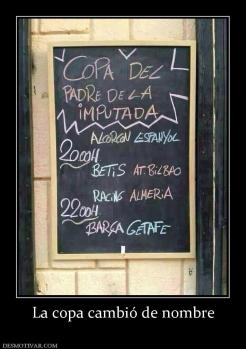 COPA DEL
PADRE DE LA
iMPUTADA
ALCORCON ESPANYOL
20:00H
BETIS AT. BILBAO
RACING ALMERIA
22:00H
BARÇA GETAFE
La copa cambió de nombre
DESMOTIVAR.COM